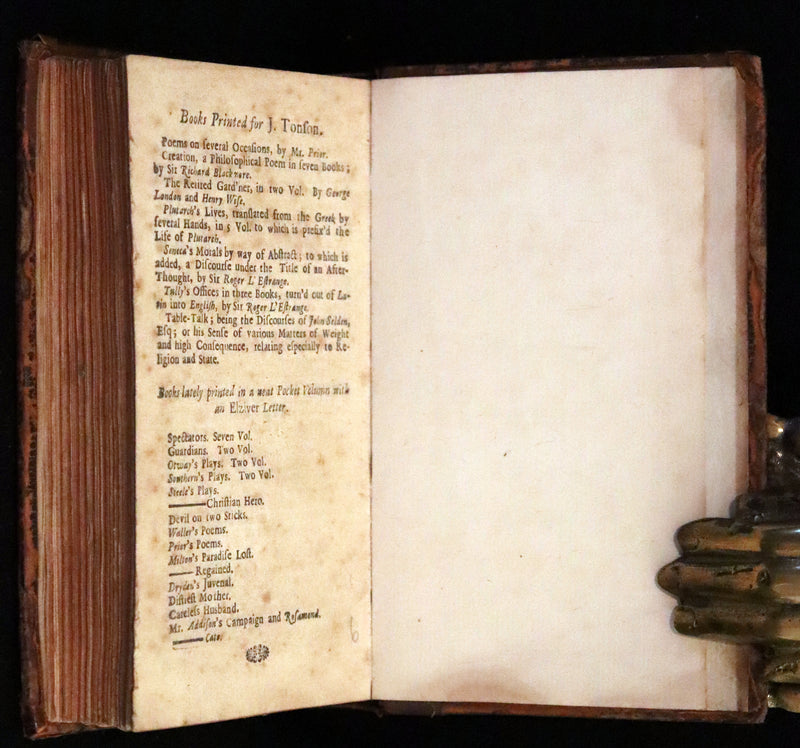 Books Printed for J. Tonſon.
Poems on ſeveral Occaſions, by Mr. Prior.
Creation, a Philoſophical Poem in ſeven Books;
by Sir Richard Blackmore.
The Retired Gard'ner, in two Vol. By George
London and Henry Wiſe.
Plutarch's Lives, tranſlated from the Greek by
ſeveral Hands, in 5 Vol. to which is prefix'd the
Life of Plutarch.
Seneca's Morals by way of Abſtract; to which is
added, a Diſcourſe under the Title of an After-
Thought, by Sir Roger L'Eſtrange.
Tully's Offices in three Books, turn'd out of La-
tin into Engliſh, by Sir Roger L'Eſtrange.
Table-Talk; being the Diſcourſes of John Selden,
Eſq; or his Senſe of various Matters of Weight
and high Conſequence, relating eſpecially to Re-
ligion and State.
Books lately printed in a neat Pocket Volumn with
an Elziver Letter.
Spectators. Seven Vol.
Guardians. Two Vol.
Otway's Plays. Two Vol.
Southern's Plays. Two Vol.
Steele's Plays.
——Chriſtian Hero.
Devil on two Sticks.
Waller's Poems.
Prior's Poems.
Milton's Paradiſe Loſt.
——Regained.
Dryden's Juvenal.
Diſtreſt Mother.
Careleſs Husband.
Mr. Addiſon's Campaign and Roſamond.
——Cato.
6